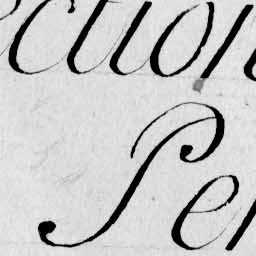 ection
Per